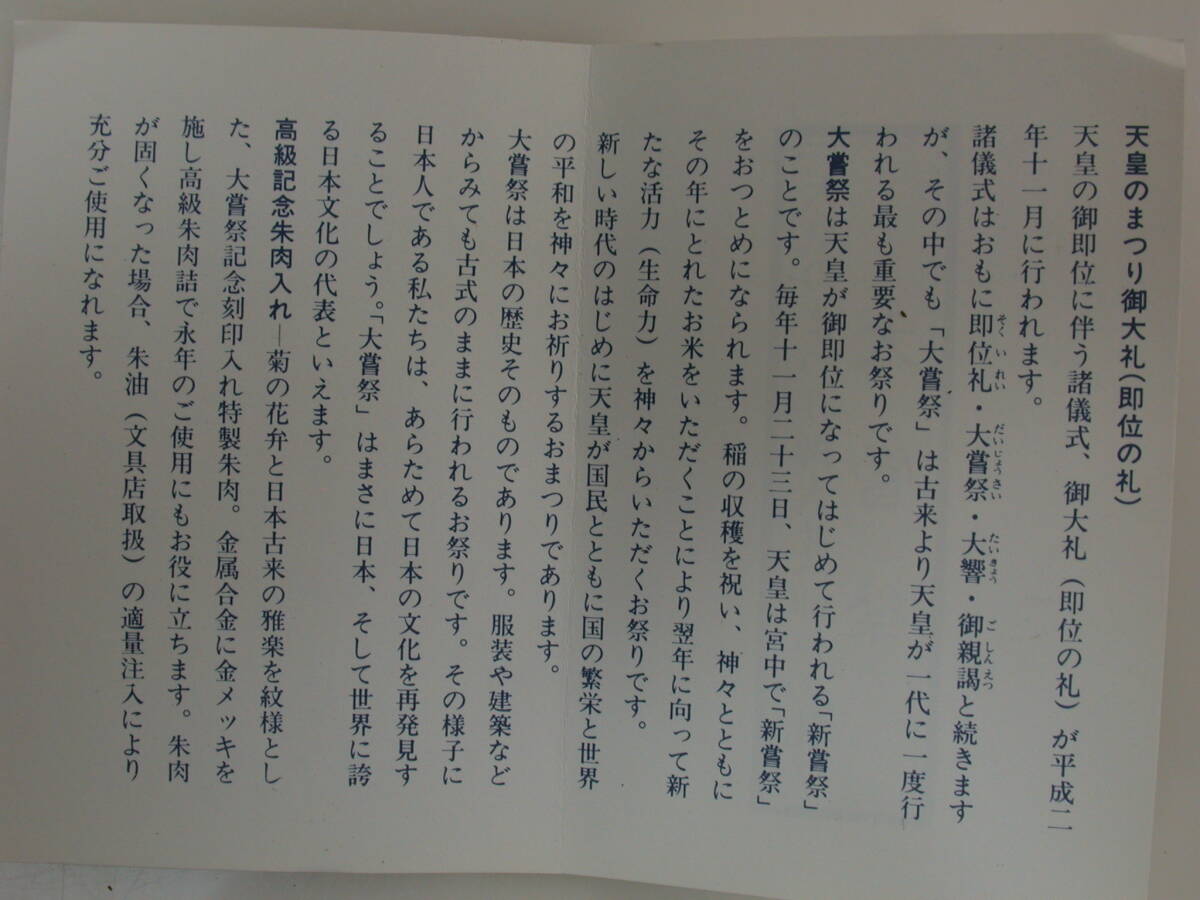 天皇のまつり御大礼(即位の礼)
天皇の御即位に伴う諸儀式、御大礼(即位の礼)が平成二
年十一月に行われます。
諸儀式はおもに即位礼・大嘗祭・大響・御親謁と続きます
そくいれい だいじょうさい たいきょう ごしんえつ
が、その中でも「大嘗祭」は古来より天皇が一代に一度行
われる最も重要なお祭りです。
大嘗祭は天皇が御即位になってはじめて行われる「新嘗祭」
のことです。毎年十一月二十三日、天皇は宮中で「新嘗祭」
をおつとめになられます。稲の収穫を祝い、神々とともに
その年にとれたお米をいただくことにより翌年に向って新
たな活力(生命力)を神々からいただくお祭りです。
新しい時代のはじめに天皇が国民とともに国の繁栄と世界
の平和を神々にお祈りするおまつりであります。
大嘗祭は日本の歴史そのものであります。服装や建築など
からみても古式のままに行われるお祭りです。その様子に
日本人である私たちは、あらためて日本の文化を再発見す
ることでしょう。「大嘗祭」はまさに日本、そして世界に誇
る日本文化の代表といえます。
高級記念朱肉入れ―菊の花弁と日本古来の雅楽を紋様とし
た、大嘗祭記念刻印入れ特製朱肉。金属合金に金メッキを
施し高級朱肉詰で永年のご使用にもお役に立ちます。朱肉
が固くなった場合、朱油(文具店取扱)の適量注入により
充分ご使用になれます。